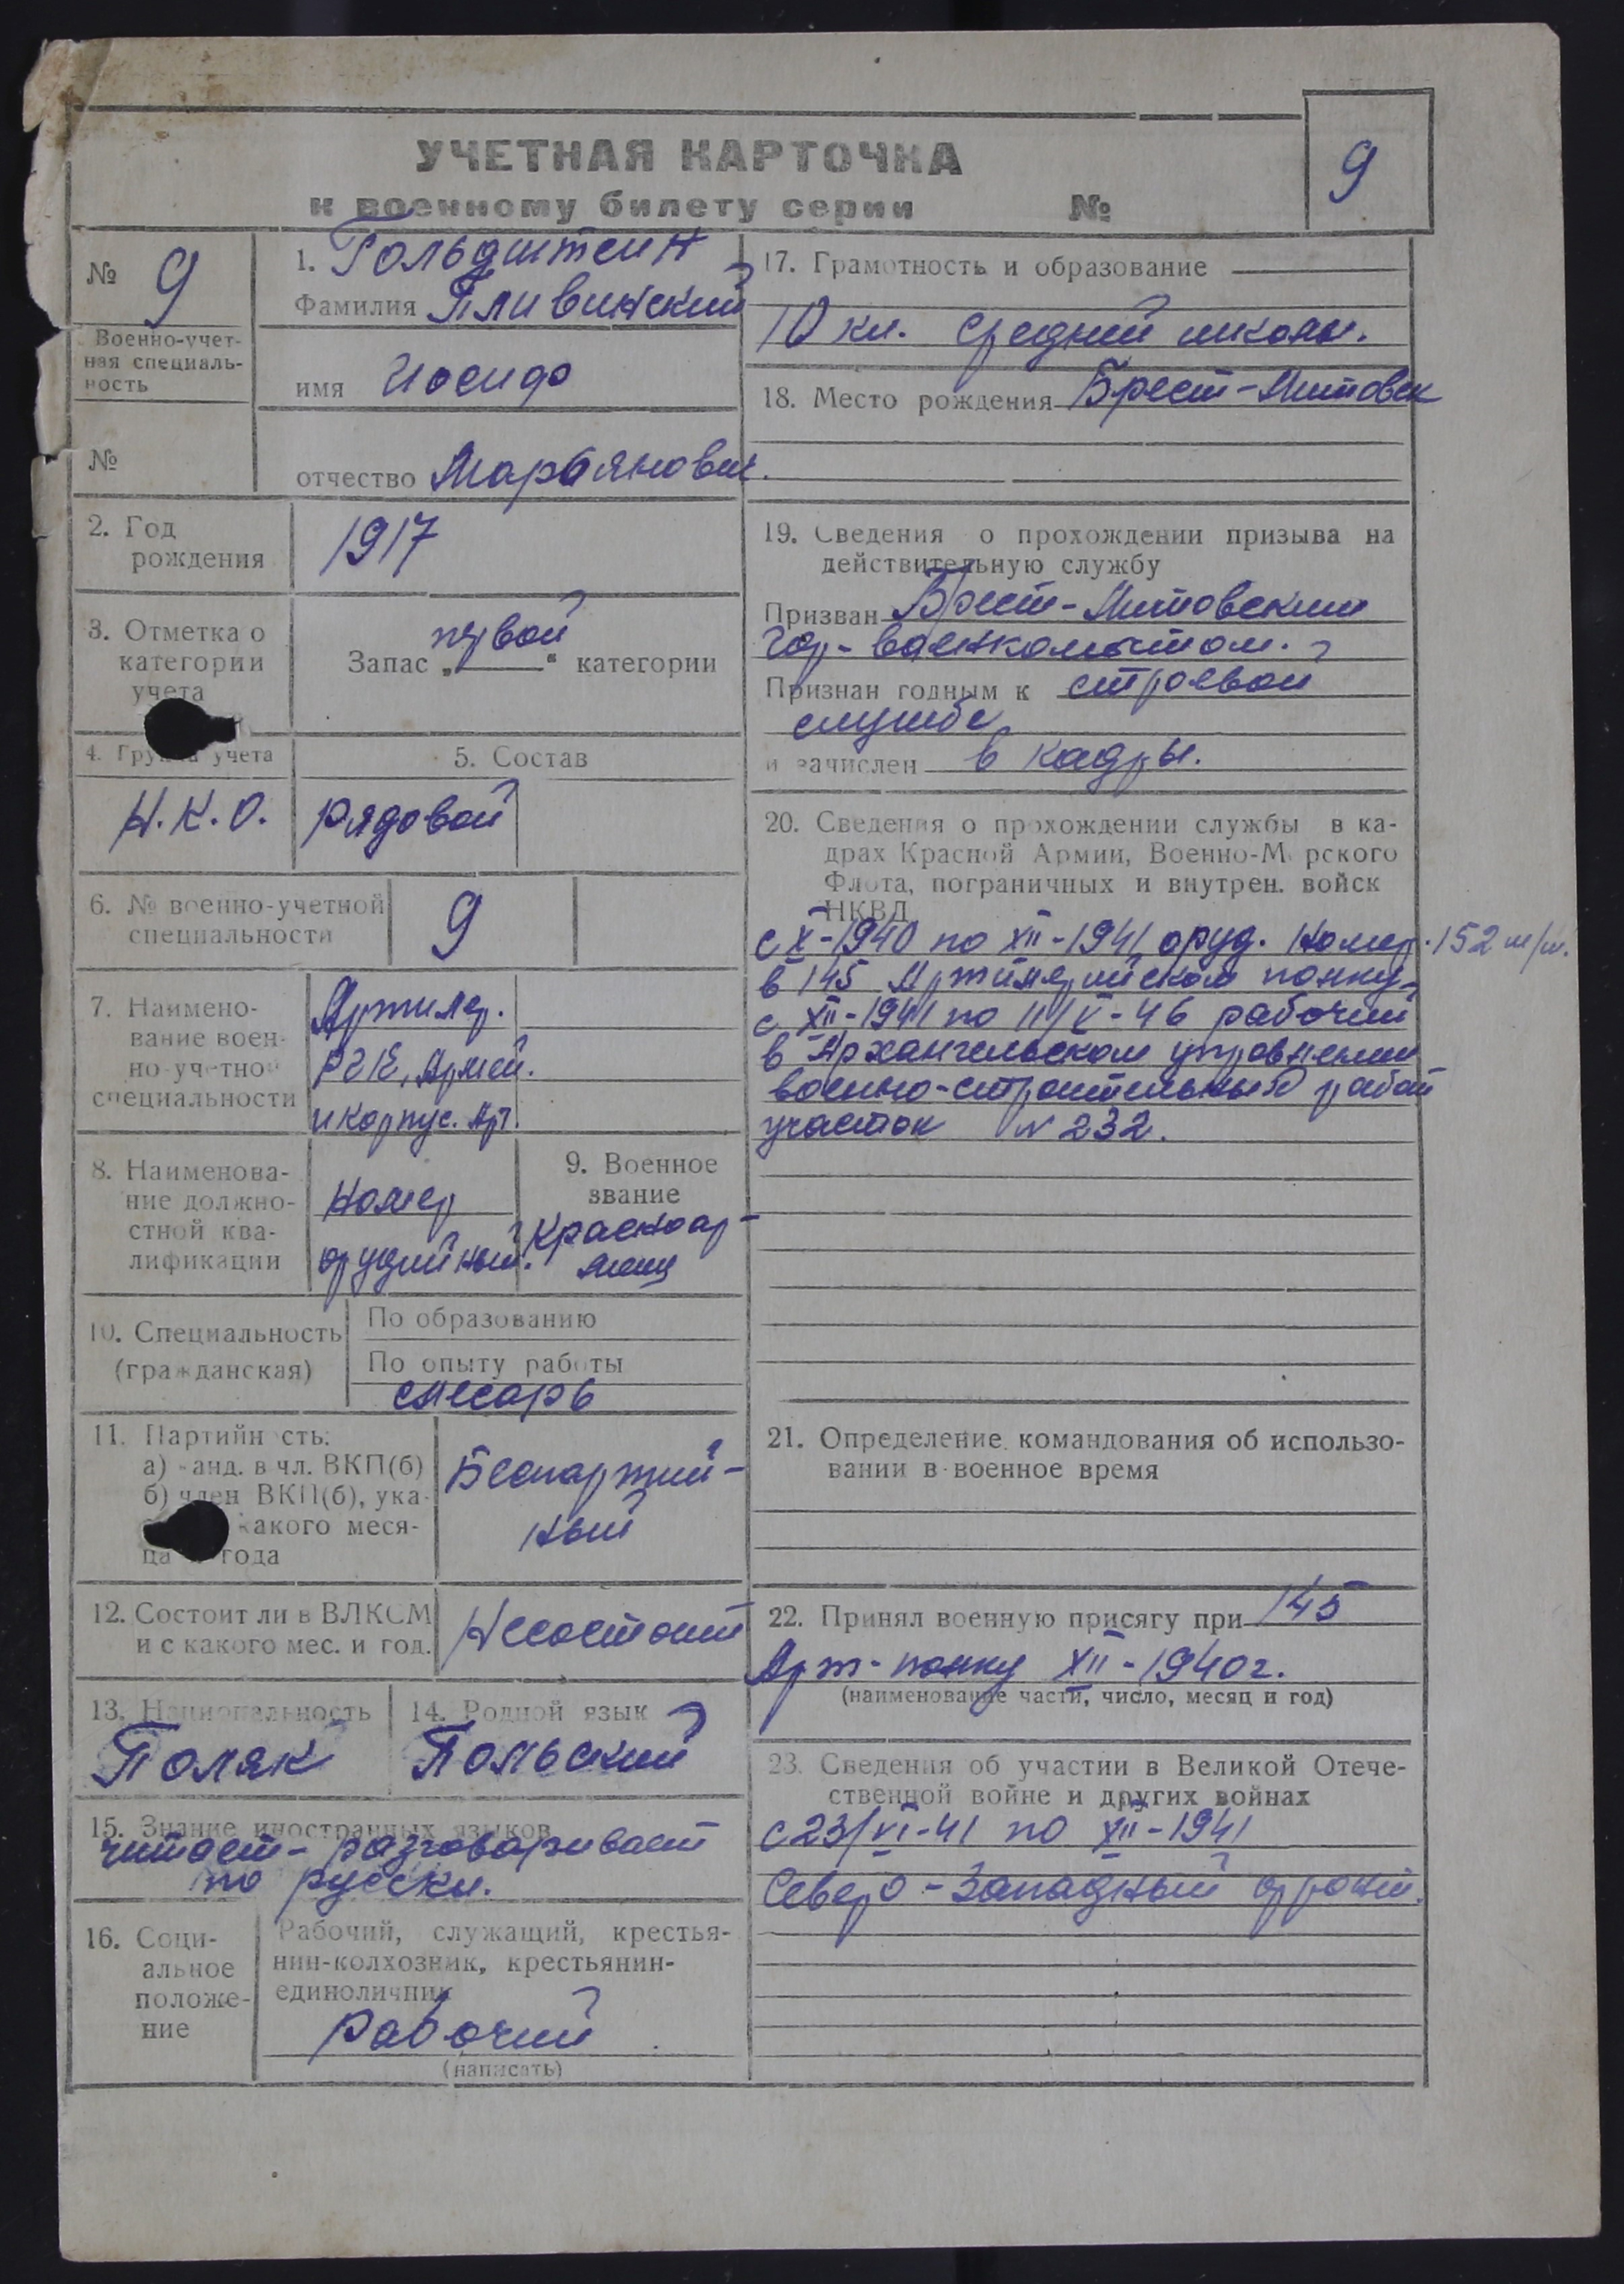 УЧЕТНАЯ КАРТОЧКА
к военному билету серии №
9
№ 9
Военно-учет-
ная специаль-
ность
№
1. Гольдштейн
Фамилия Пливинский
имя Иосиф
отчество Марьянович.
2. Год
рождения
1917
3. Отметка о
категории
учета
первой
Запас „ “ категории
4. Группа учета
Н.К.О.
5. Состав
рядовой
6. № военно-учетной
специальности
9
7. Наимено-
вание воен-
но-учетной
специальности
Артилер.
РГК, Армей.
и корпус. Арт.
8. Наименова-
ние должно-
стной ква-
лификации
номер
орудийный.
9. Военное
звание
Красноар-
меец
10. Специальность
(гражданская)
По образованию
По опыту работы
слесарь
11. Партийность:
а) канд. в чл. ВКП(б)
б) член ВКП(б), ука-
какого меся-
ца года
Беспартий-
ный
12. Состоит ли в ВЛКСМ
и с какого мес. и год.
Несостоит
13. Национальность
Поляк
14. Родной язык
Польский
15. Знание иностранных языков
читает-разговаривает
по русски.
16. Соци-
альное
положе-
ние
Рабочий, служащий, крестья-
нин-колхозник, крестьянин-
единоличник
рабочий
(написать)
17. Грамотность и образование
10 кл. средней школы.
18. Место рождения Брест-Литовск
19. Сведения о прохождении призыва на
действительную службу
Призван Брест-Литовским
гор-военкоматом.
Признан годным к строевой
службе
и зачислен в кадры.
20. Сведения о прохождении службы в ка-
драх Красной Армии, Военно-Морского
Флота, пограничных и внутрен. войск
НКВД
с X-1940 по XII-1941 оруд. номер. 152 м/м.
в 145 Артиллерийском полку
с XII-1941 по 11/V-46 рабочий
в Архангельском управлении
военно-строительных работ
участок № 232.
21. Определение командования об использо-
вании в военное время
22. Принял военную присягу при 145
Арт-полку XII-1940г.
(наименование части, число, месяц и год)
23. Сведения об участии в Великой Отече-
ственной войне и других войнах
с 23/VI-41 по XII-1941
Северо-Западный фронт.